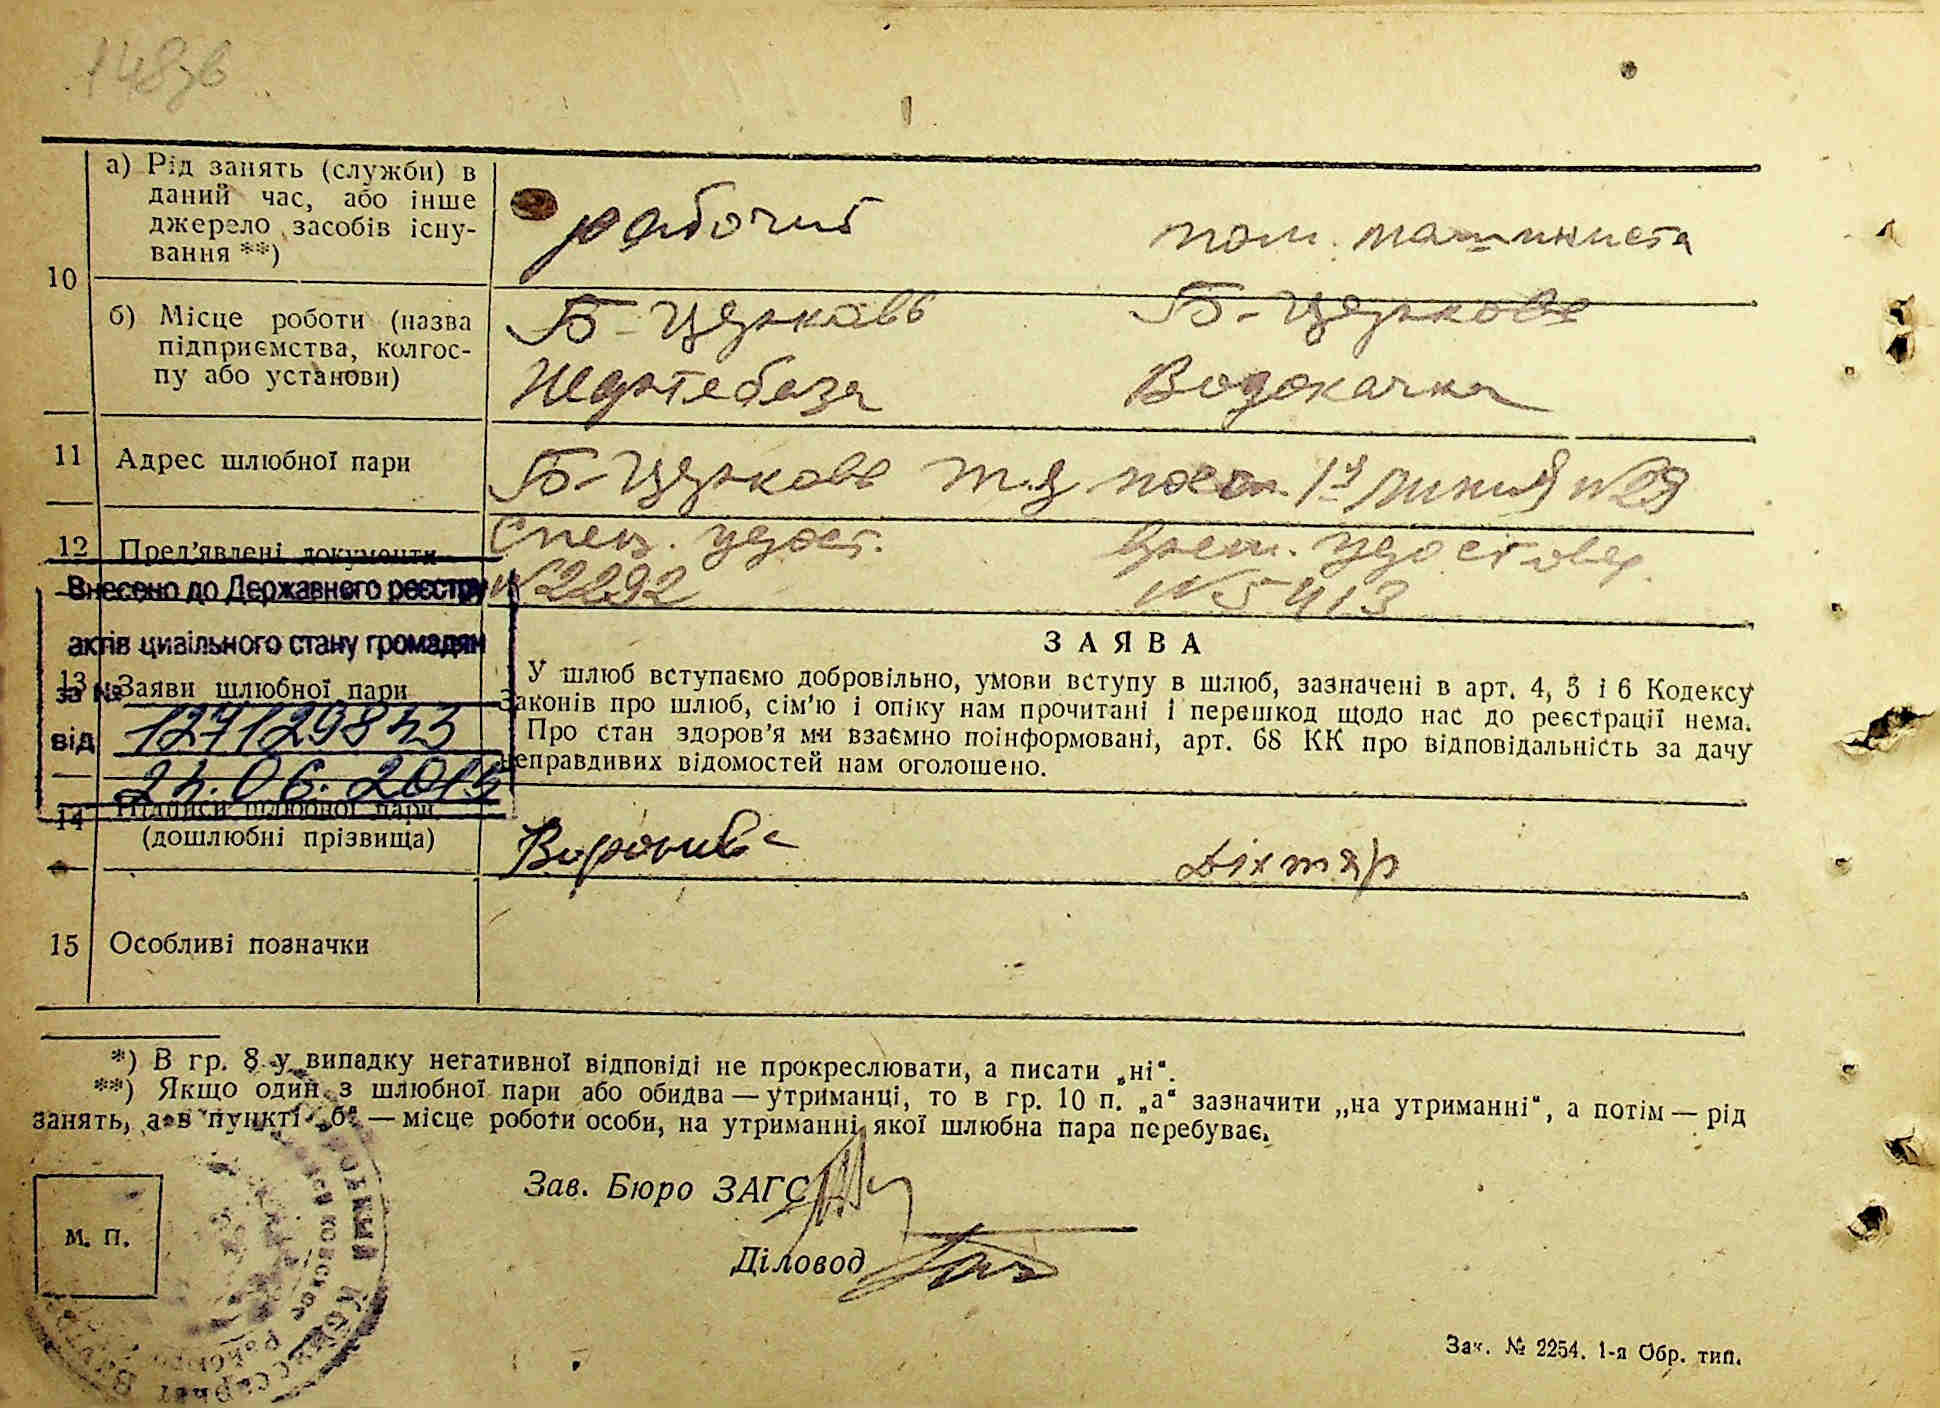 148зв
10
а) Рід занять (служби) в
даний час, або інше
джерело засобів існу-
вання **)
рабочий
пом. машиниста
б) Місце роботи (назва
підприємства, колгос-
пу або установи)
Б-Церковь
Нефтебаза
Б-Церковь
Водокачка
11 Адрес шлюбної пари
Б-Церковь
линия №
12 Пред'явлені документи
Спец. удост.
№2292
удостовер.
№5413
Внесено до Державного реєстру
актів цивільного стану громадян
за №
127129843
від
06.
13 Заяви шлюбної пари
ЗАЯВА
У шлюб вступаємо добровільно, умови вступу в шлюб, зазначені в арт. 4, 5 і 6 Кодексу
Законів про шлюб, сім'ю і опіку нам прочитані і перешкод щодо нас до реєстрації нема.
Про стан здоров'я ми взаємно поінформовані, арт. 68 КК про відповідальність за дачу
неправдивих відомостей нам оголошено.
14 Підписи шлюбної пари
(дошлюбні прізвища)
Дихтяр
15 Особливі позначки
*) В гр. 8 у випадку негативної відповіді не прокреслювати, а писати „ні“.
**) Якщо один з шлюбної пари або обидва — утриманці, то в гр. 10 п. „а“ зазначити „на утриманні“, а потім — рід
занять, а в пункті „б“ — місце роботи особи, на утриманні якої шлюбна пара перебуває.
Зав. Бюро ЗАГС
Діловод
М. П.
Зак. № 2254. 1-я Обр. тип.